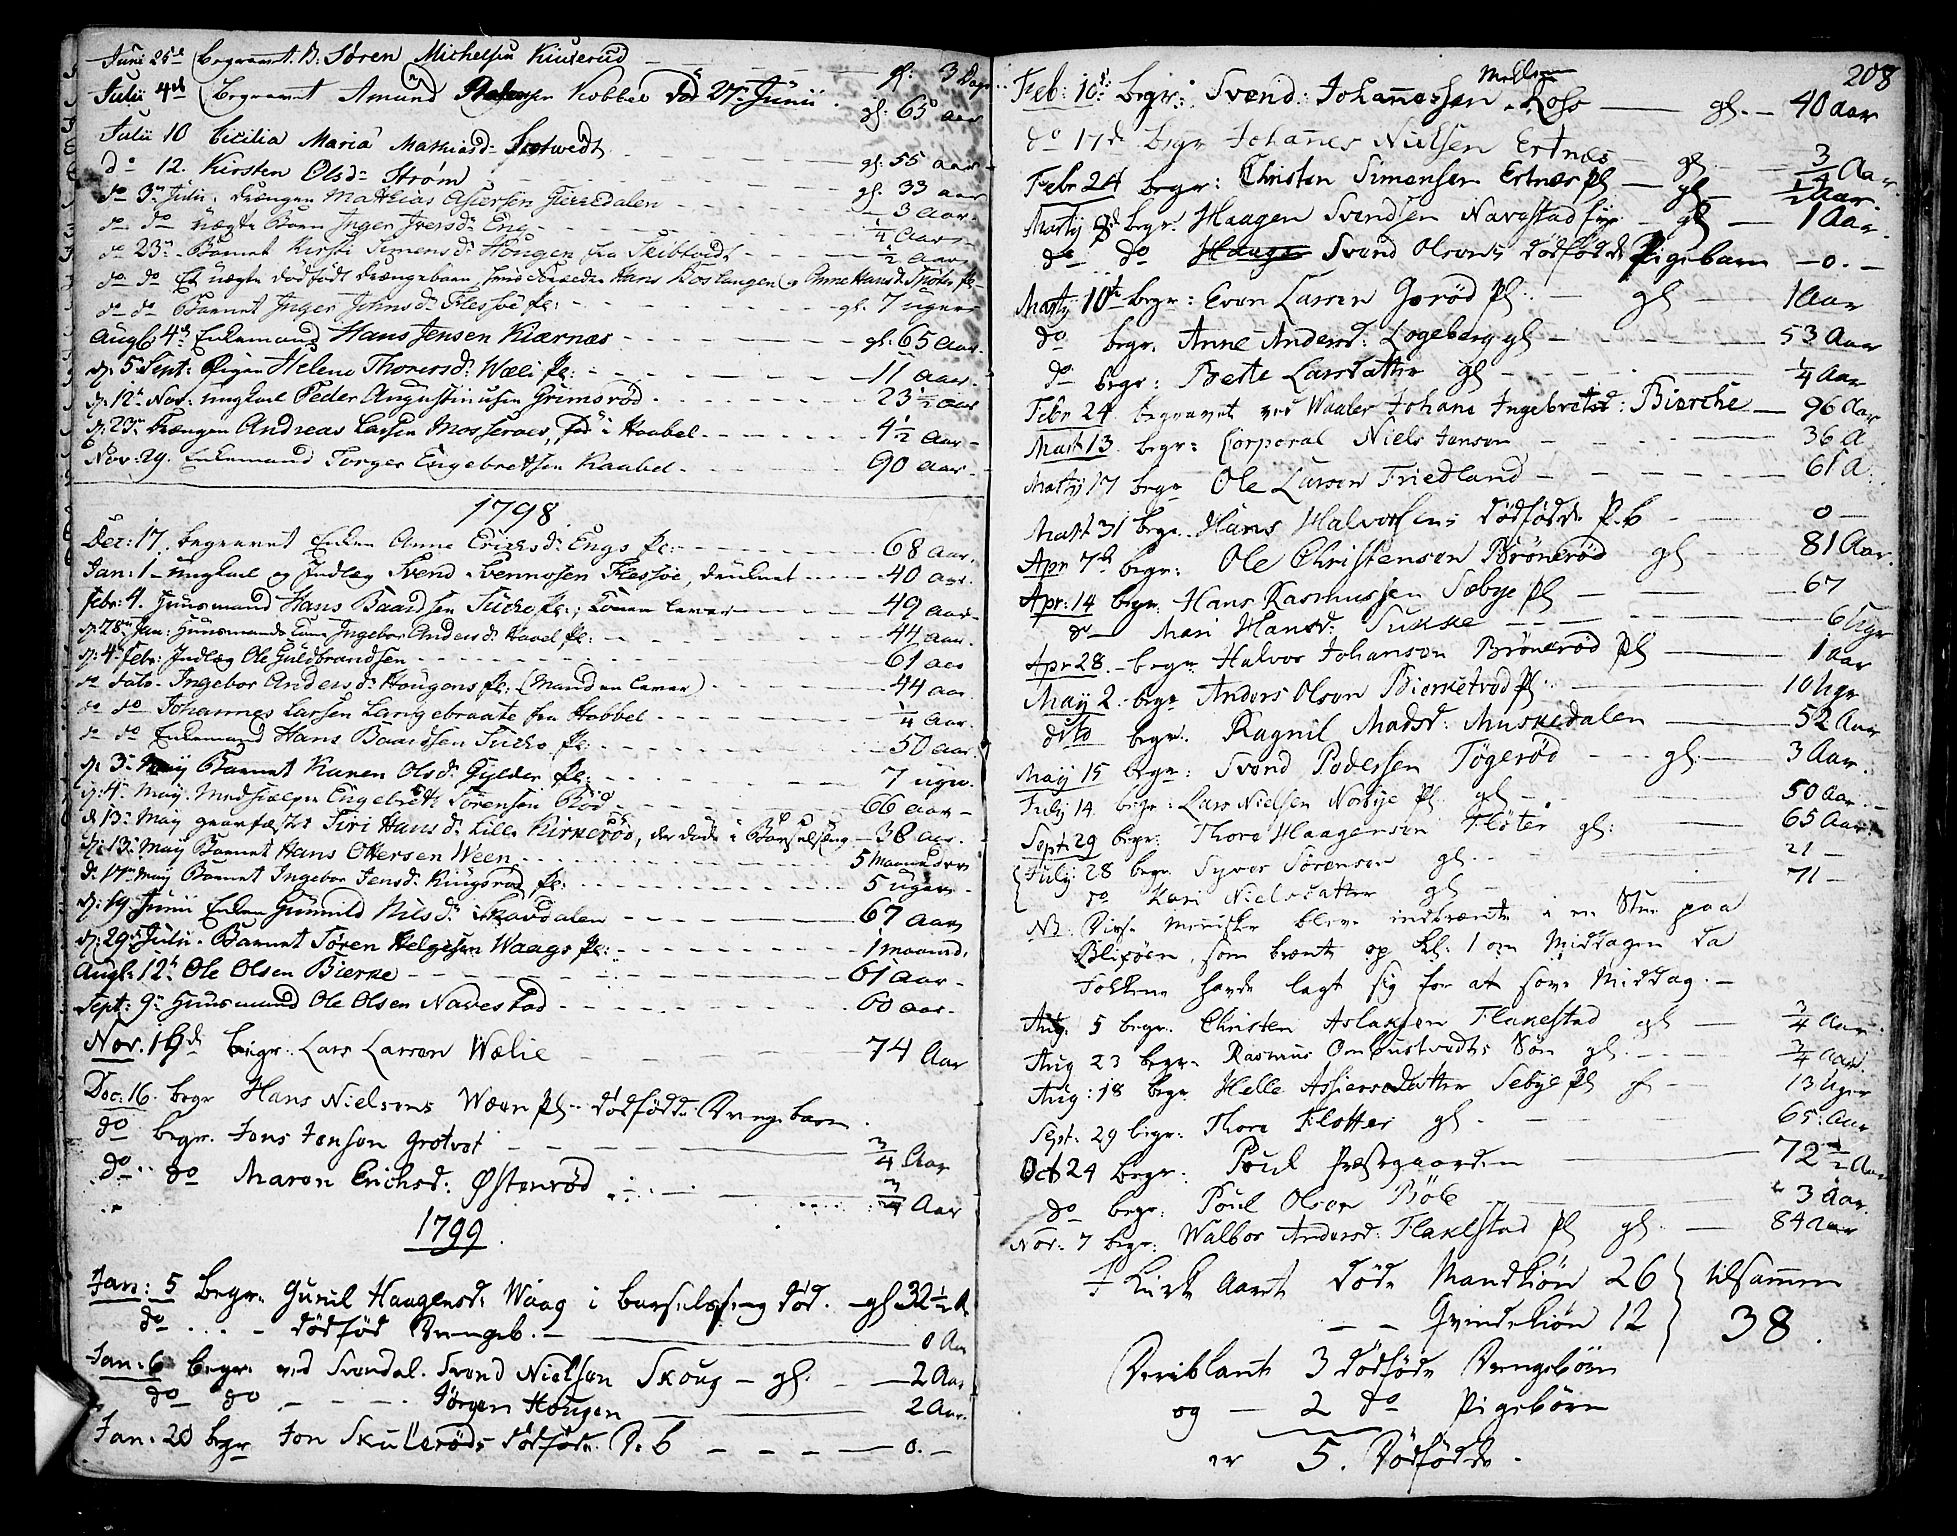 Juni 25de begravet B: Søren Michelsen Kinserud gl: 3 Dage
Julii 4de Begravet Amund Kobbel død 27de Junii gl: 63 aar
Julii 10 Cicilia Maria Mathiasd: Sootvedt gl: 55 aar
do 12. Kirsten Olsd: Strøm gl: 33 aar
do 3de Julii. Drængen Mathias Giersen Fierredalen 3 aar
do do uægte Barn Inger Iversd: Eng 1/4 Aar
do 23de Barnet Kirsti Simensd: Hougen fra Skibtvedt 1/2 aar
do do Et uægte dødfødt Drængebarn, Hans Koslangen og Anne Hansd:
do do Barnet Inger Johnsd: Flessøe pl: gl: 7 uger
Aug: 4de Enkemand Hans Jensen Kiærnæs gl: 65 aar
d: 5 Sept: Pigen Helene Thoresd: Wæli pl: 11 aar
d: 12te Nov: ungkarl Peder Augustinusen Grimsrød 23 1/2 aar
d: 23de Drængen Andreas Larsen Mosseroes, fød i Haabel 4 1/2 aar
Nov: 29. Enkemand Torger Engebretsen Kaabel 90 aar
1798
Dec: 17. begravet Enken Anne Erichsd: Engs pl: 68 aar
Jan: 1 ungkarl og Indlæg Svend Svennosen Flessøe, druknet 40 aar
Febr: 4. Huusmand Hans Baardsen Sucho pl:, Konen lever 49 aar
d: 28de Jan: Huusmands Kone Ingebor Andersd: Havel pl: 44 aar
d: 4de Febr: Indlæg Ole Guldbrandsen 61 aar
do dato Ingebor Andersd: Hougens pl: (Manden lever) 44 aar
do do Johannes Larsen Langebraate fra Hobbel 1/4 Aar
do do Enkemand Hans Baardsen Sucho pl: 50 aar
d: 3de May Barnet Karen Olsd: Gylder pl: 7 uger
d: 4de May. Medhielper Engebreth Sørensen Rød 66 aar
d: 13de May gaardfæstes Siri Hansd: Lille Kirkerød, der døde i Barselseng 38 aar
d: 13de May Barnet Hans Ottersen Ween 5 Maaneder
d: 17de May Barnet Ingebor Jensd: Ringsrød pl: 5 uger
d: 19. Junii Enken Gunnild Nilsd: Skavdalen 67 aar
d: 29de Julii. Barnet Søren Helgesen Waags pl: 1 maaned
Aug: 12te Ole Olsen Bierke 61 aar
Sept: 9de Huusmand Ole Olsen Navestad 60 aar
Nov. 18de begr: Lars Larsen Wælie 74 Aar
Dec: 16. begr Hans Nielsens Ween Pl. dødfødde Drengebarn
do begr. Jens Jensen Grotvet 3/4 Aar
do do Maren Erichsd: Østenrød 3/4 Aar
1799
Jan: 5 begr. Gunil Haagensd: Waag i barselseng død. gl 32 1/2 A
do dødfød Drengeb. 0 Aar
Jan: 6 begr: ved Svendal. Svend Nielsen Skoug gl. 2 Aar
do do Jørgen Hougen 2 Aar.
Jan: 20 begr Jon Skullerøds dødføde D. b 0.
208
Feb: 10de begr: Svend: Johannessen Mellem Foss gl. 40 aar
do 17de begr Johannes Nielsen Ertnes gl 3/4 Aar
Febr 24 begr: Christen Simensen Ertnes pl gl 1/2 Aar.
Martij begr. Haagen Svendsen Navestad gl 1 Aar
do do Svend Olsens dødfødde Pigebarn 0.
Martij 10de begr: Even Larsen Gorød Pl. gl 1 Aar
do begr. Anne Andersd: Logeberg gl 53 Aar
do begr: Berte Larsdatter gl 1/4 Aar
Febr 24. begravet ved Waaler Johane Ingebretsd: Bierche 96 Aar
Mart 13 begr: Corporal Niels Jensen 36 A
Martij 17 begr Ole Larsen Friedland 61 A.
Mart 31 begr. Hans Halvorsens dødfødde P. b 0
Apr 7de begr: Ole Christensen Brønerød gl 81 Aar.
Apr: 14 begr. Hans Rasmussen Sæbye pl 67
do Mari Hansd. Sukke 6 Uger
Apr 28. begr Halvor Johansen Brønerød pl 1 aar
May 2. begr Anders Olsen Bierketvedt pl. 10 Uger
dito begr. Ragnil Madsd: Muskedalen 52 Aar
May 15 begr: Svend Pedersen Tøgerød gl. 3 Aar.
July 14 begr: Lars Nielsen Norbye pl gl 50 Aar.
Sept: 29 begr: Thore Haagensen Fløter gl: 65 Aar
July 28 begr Syver Sørensen gl. 21
do Kari Nielsdatter gl 71
NB. Disse Mennisker bleve indbrændte i en Stue paa
Blixøen, som brændte op kl: 1 om Middagen da
Folkene havde lagt sig for at sove Middag.
Aug: 5 begr. Christen Aslaksen Flakestad gl 3/4 Aar
Aug 23 begr. Rasmus Ombustvedts Søn gl. 3/4 Aar.
Aug: 18 begr Helle Asgiersdatter Sebye pl gl 13 Uger
Sept: 29 begr: Thore Flotter gl. 65: Aar
Oct 24 begr: Poul Præstgaarden 72 1/2 Aar
do begr: Poul Olsen Bøle 3 Aar.
Nov: 7 begr: Walbor Andersd: Flakestad pl gl. 84 Aar
I Kirke Aaret døde Mandkiøn 26 } tilsammen
Qvindekiøn 12 } 38.
Deriblandt 3 dødføde Drengebørn
og 2 do Pigebørn
er 5. Dødfødde.